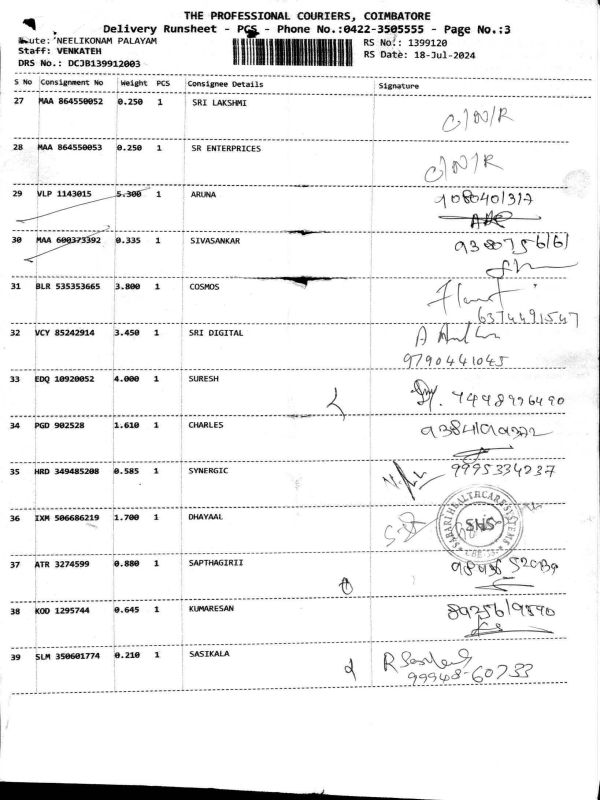 THE PROFESSIONAL COURIERS, COIMBATORE
Delivery Runsheet - PCS - Phone No.:0422-3505555 - Page No.:3
Route: NEELIKONAM PALAYAM RS No.: 1399120
Staff: VENKATEH RS Date: 18-Jul-2024
DRS No.: DCJB139912003
S No Consignment No Weight PCS Consignee Details Signature
27 MAA 864550052 0.250 1 SRI LAKSHMI C/N/R
28 MAA 864550053 0.250 1 SR ENTERPRICES C/N/R
29 VLP 1143015 5.300 1 ARUNA
30 MAA 600373392 0.335 1 SIVASANKAR
31 BLR 535353665 3.800 1 COSMOS
6374491547
32 VCY 85242914 3.450 1 SRI DIGITAL
9790441045
33 EDQ 10920052 4.000 1 SURESH 7448996490
34 PGD 902528 1.610 1 CHARLES
35 HRD 349485208 0.585 1 SYNERGIC 9995334237
36 IXM 506686219 1.700 1 DHAYAAL SABARI HEALTHCARE SYSTEMS SHS CBE
37 ATR 3274599 0.880 1 SAPTHAGIRII
38 KOD 1295744 0.645 1 KUMARESAN
39 SLM 350601774 0.210 1 SASIKALA
99948-60733